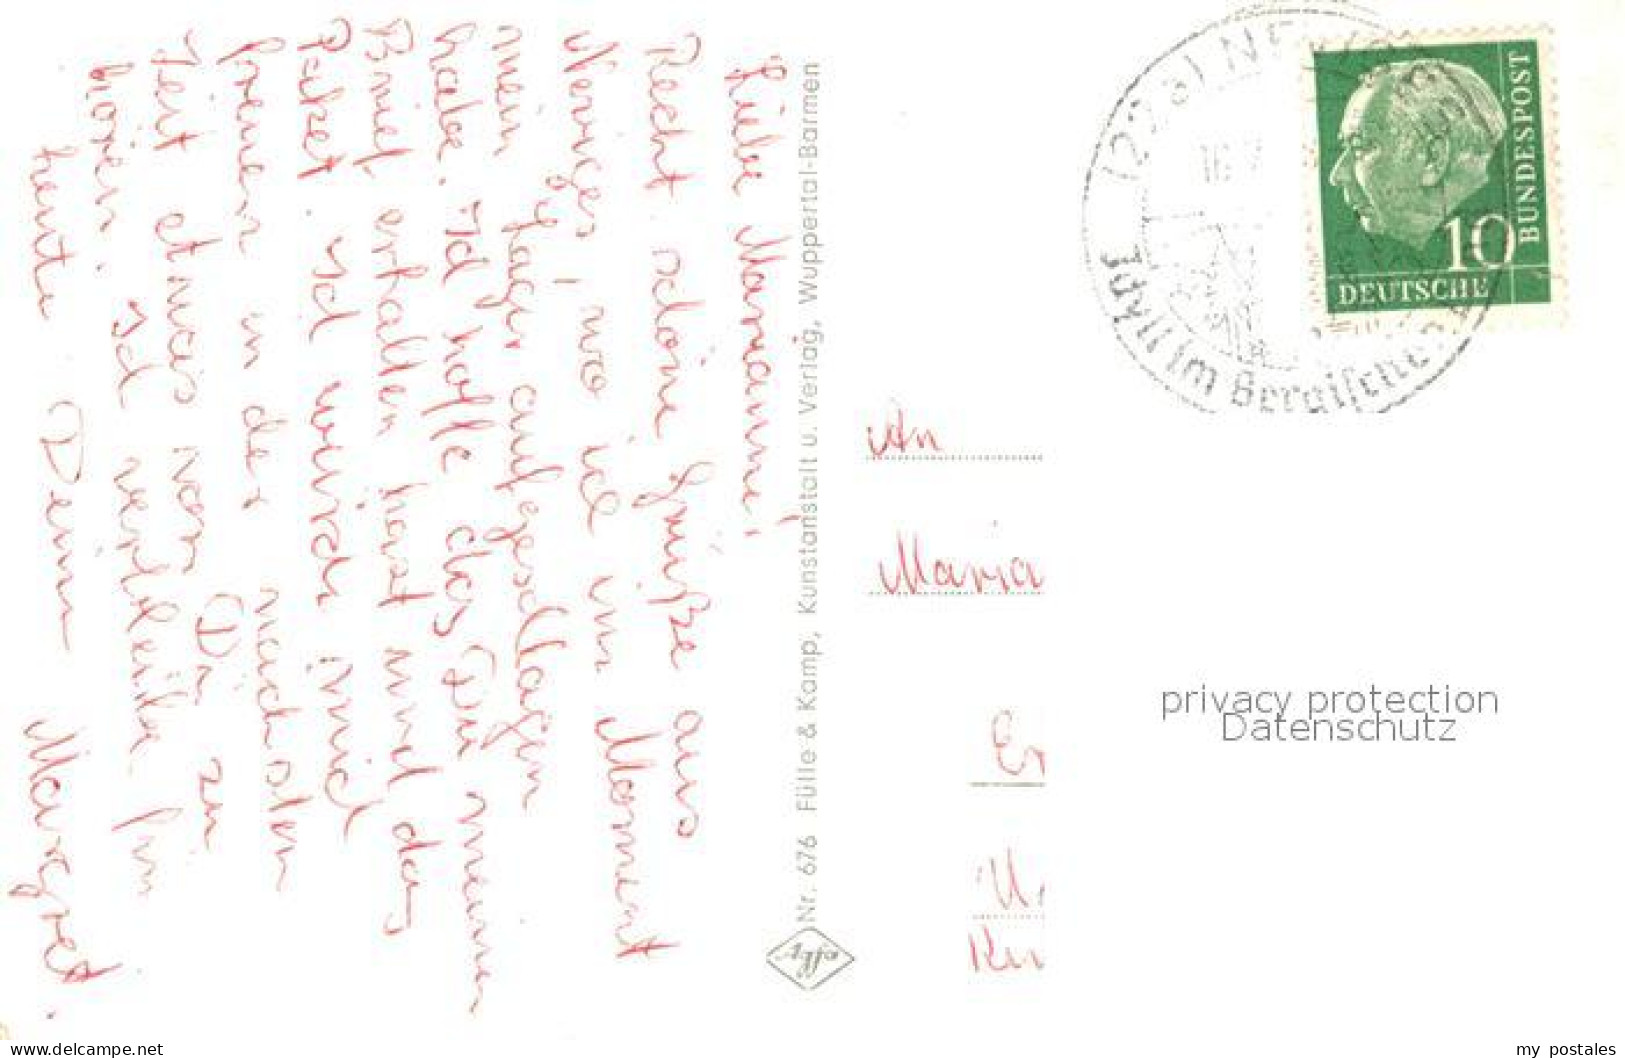 Liebe Marianne!
Recht schöne Grüße aus
Neviges, wo ich im Moment
mein Lager aufgeschlagen
habe. Ich hoffe das Du meinen
Brief erhalten hast und das
Paket. Ich würde mich
freuen in der nächsten
Zeit etwas von Dir zu
hören. Ich verbleibe für
heute Deine Margret.
Nr. 676 Fülle & Kamp, Kunstanstalt u. Verlag, Wuppertal-Barmen
Agfa
(22a) NEV
Idyll im Bergischen
DEUTSCHE
BUNDESPOST
10
An
Maria
privacy protection
Datenschutz
delcampe.net
my_postales